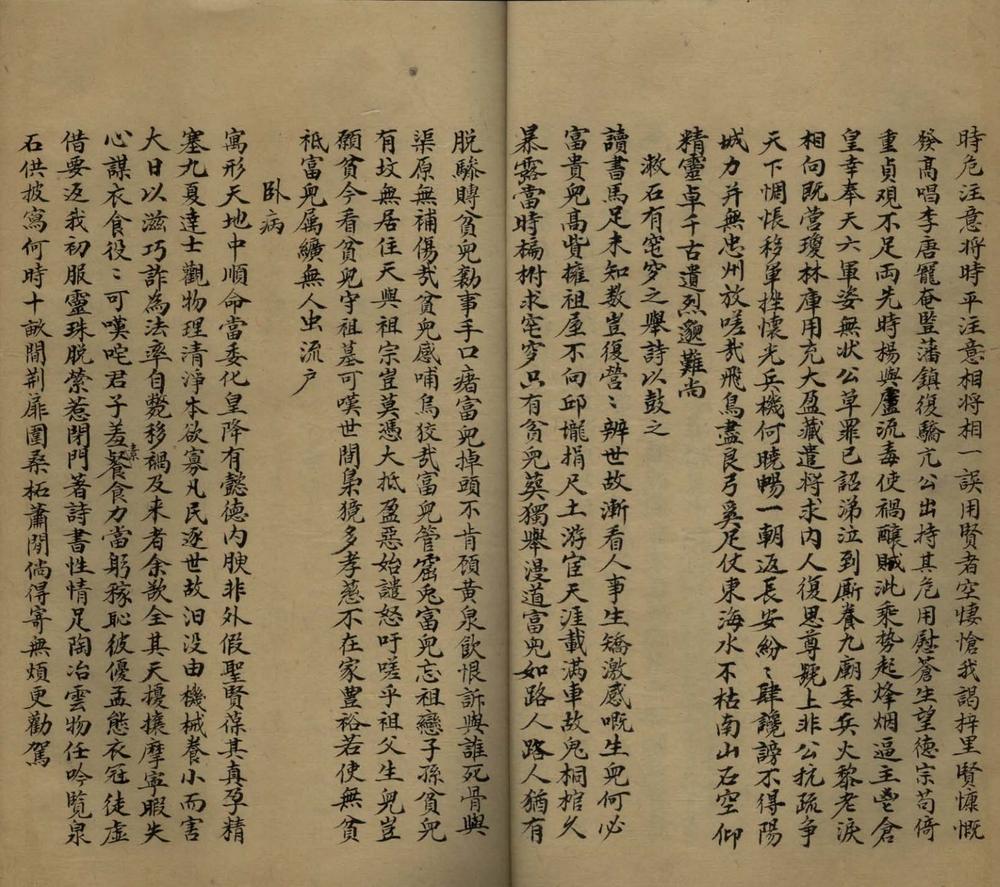 時危注意將時平注意相將相一誤用賢者空悽愴我謁梓里賢慷慨
發高唱李唐寵奄豎藩鎮復驕亢公出持其危用慰蒼生望德宗苟倚
重貞觀不足両先時楊與盧流毒使禍釀賊泚乘勢起烽烟逼主鑾倉
皇幸奉天六軍姿無状公草罪已詔涕泣到廝養九廟委兵火黎老淚
相向既营瓊林庫用充大盈藏遣将求内人復思尊號上非公抗疏争
天下惆悵移軍挫懷光兵機何曉暢一朝返長安紛〻肆讒謗不得陽
城力并無忠州放嗟哉飛鳥盡良弓奚足仗東海水不枯南山石空仰
精靈卓千古遺烈邈難尚
敕石有窀穸之舉詩以鼓之
讀書馬足未知数豈復營〻辨世故漸看人事生矯激感嘅生兒何必
富貴兒高貲擁祖屋不向邱壠捐尺土游宦天涯載滿車故鬼桐棺久
暴露當時楄柎求窀穸只有貧兒葵獨舉漫道富兒如路人路人猶有
脱驂賻貧兒勷事手口瘏富兒掉頭不肯顧黄泉飲恨訴與誰死骨與
渠原無補傷哉貧兒感哺烏狡哉富兒管窟兎富兒忘祖戀子孫貧兒
有坟無居住天與祖宗豈莫憑大抵盈惡始譴怒吁嗟乎祖父生兒豈
願貧今看貧兒守祖墓可嘆世間梟獍多孝慈不在家豊裕若使無貧
祇富兒属纊無人虫流户
卧病
寓形天地中順命當委化皇降有懿德内腴非外假聖賢葆其真孕精
塞九夏達士觀物理清淨本欲寡凡民逐世故汩没由機械養小而害
大日以滋巧詐為法率自斃移禍及来者余欲全其天擾攘摩寧暇失
心謀衣食役〻可嘆咤君子羞素餐食力當躬稼恥彼優孟態衣冠徒虚
借要返我初服靈珠脱縈惹閉門著詩書性情足陶冶雲物任吟覧泉
石供披寫何時十畝間荆扉圍桑柘蕭閒倘得寄無煩更勸駕